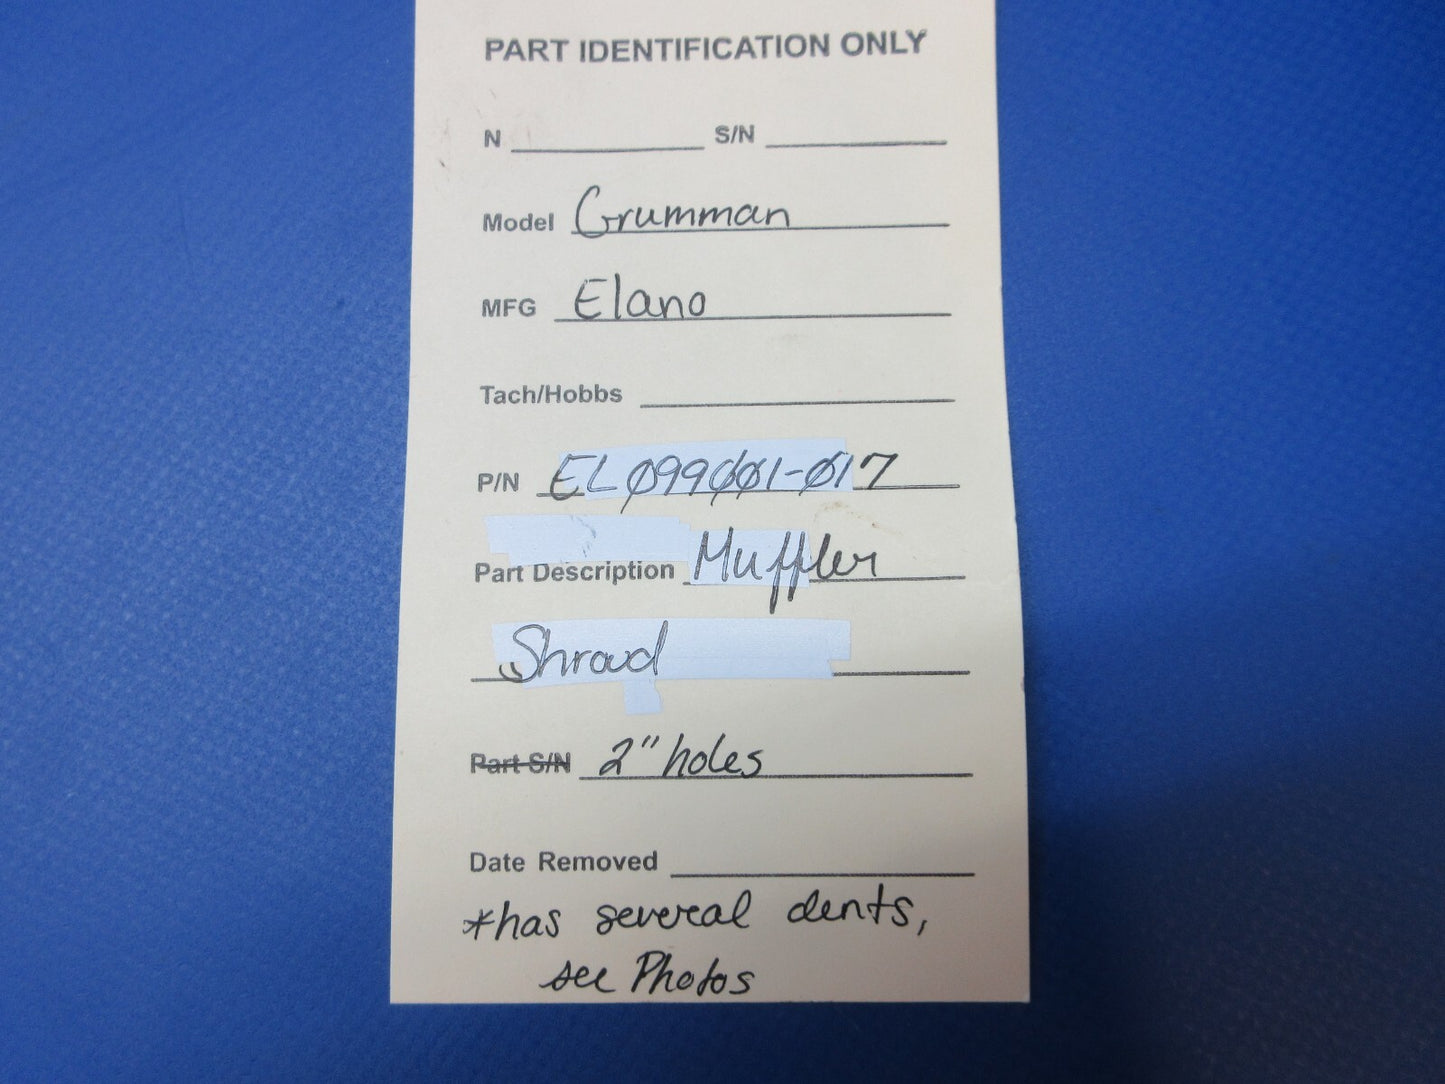 PART IDENTIFICATION ONLY
N S/N
Model Grumman
MFG Elano
Tach/Hobbs
P/N EL099001-017
Part Description Muffler
Shroud
Part S/N 2" holes
Date Removed
*has several dents,
see Photos